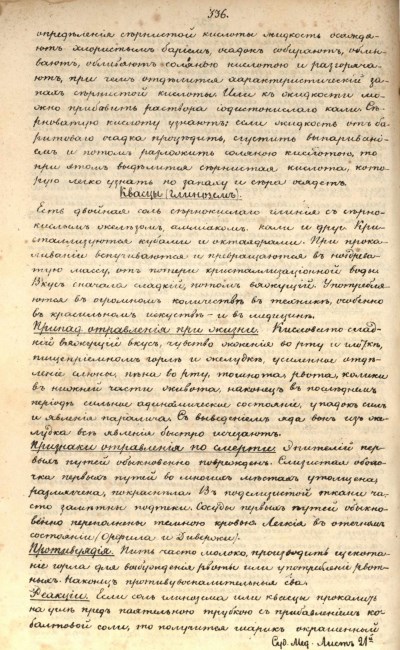 336.
опредѣленія сѣрнистой кислоты жидкость осаждa-
ютъ хлористымъ баріемъ, осадокъ собираютъ, обмы-
ваютъ, обливаютъ соляною кислотою и разгоряча-
ютъ, при чемъ отдѣлится характеристическій за-
пахъ сѣрнистой кислоты. Или къ жидкости мо-
жно прибавить раствора іодистокислаго кали. Сѣ-
рноватую кислоту узнаютъ: если жидкость отъ ба-
ритоваго осадка процѣдить, сгустить выпаривані-
емъ и потомъ разложить соляною кислотою, то
при этомъ выдѣлится сѣрнистая кислота, кото-
рую легко узнать по запаху и сѣра осядетъ.
Квасцы (глиноземъ).
Есть двойная соль сѣрнокислаго глинія съ сѣрно-
кислымъ амміакомъ, кали и друг. Кри-
сталлизуются кубами и октаэдрами. При прока-
ливаніи вспучиваются и превращаются въ ноздрева-
тую массу, отъ потери кристаллизаціонной воды.
Вкусъ сначала сладкій, потомъ вяжущій. Употребля-
ются въ огромномъ количествѣ въ техникѣ, особенно
въ красильномъ искуствѣ и въ медицинѣ.
Припад. отравленія при жизни. Кисловато слад-
кій вяжущій вкусъ, чувство жженія во рту и глоткѣ,
пищепріемномъ горлѣ и желудкѣ, усиленное отдѣ-
леніе слюны, пѣна во рту, тошнота рвота, колики
въ нижней части живота, наконецъ въ послѣднемъ
періодѣ сильное адинамическое состояніе, упадокъ силъ
и явленія паралича. Съ выведеніемъ яда вонъ изъ же-
лудка всѣ явленія быстро исчезаютъ.
Признаки отравленія по смерти. Эпителій пер-
выхъ путей обыкновенно поврежденъ. Слизистая оболо-
чка первыхъ путей во многихъ мѣстахъ утолщена,
размягчена, покраснѣла. Въ подслизистой ткани ча-
сто замѣтны подтеки. Сосуды первыхъ путей обыкно-
венно переполнены темною кровью. Легкія въ отечномъ
состояніи (Орфила и Девержи).
Противуядія. Пить часто молоко, производить щекота-
ніе горла для возбужденія рвоты или употребленіе рвот-
ныхъ. Наконецъ противувоспалительныя
Реакціи. Если соль глинозема или квасцы прокалить
на углѣ предъ паятельною трубкою съ прибавленіемъ ко-
бальтовой соли, то получится шарикъ окрашенный
Суд. Мед. Листъ 21й